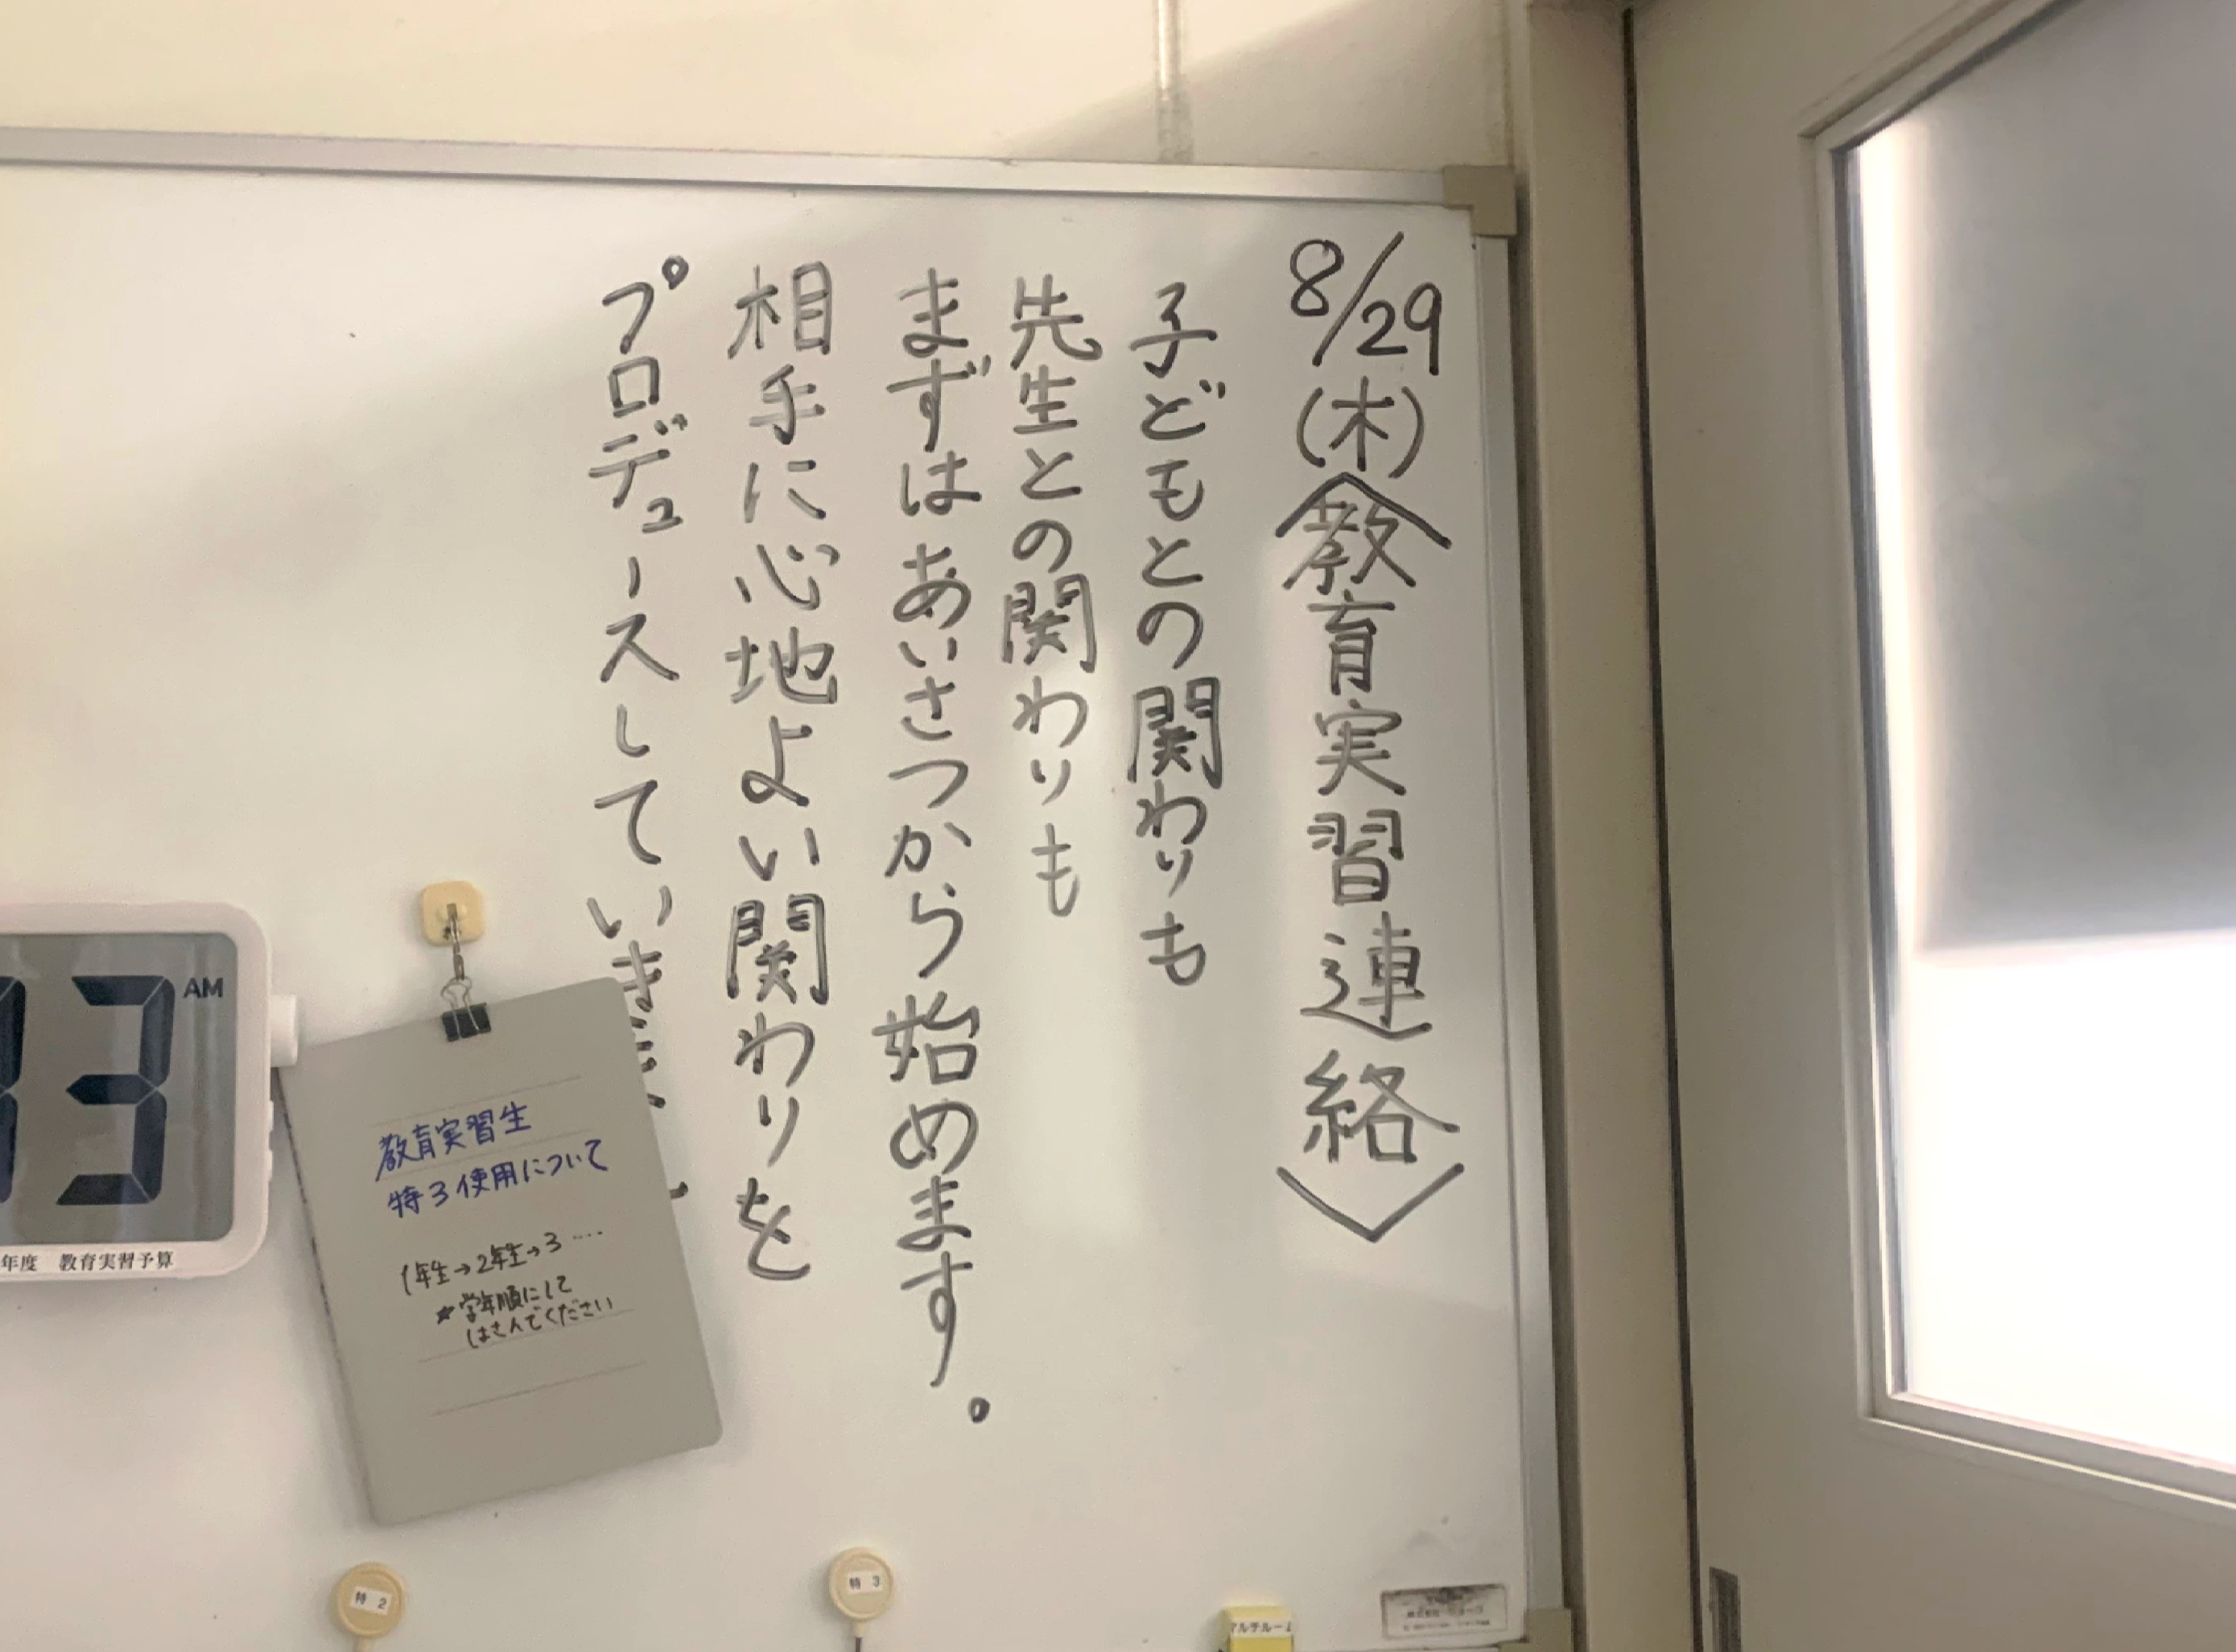 8/29(木)〈教育実習連絡〉
子どもとの関わりも
先生との関わりも
まずはあいさつから始めます。
相手に心地よい関わりを
プロデュースしていきま
3 AM
年度 教育実習予算
教育実習生
特3使用について
1年生→2年生→3‥‥
★学年順にして
はさんでください
特 2
特 3
マルチルーム